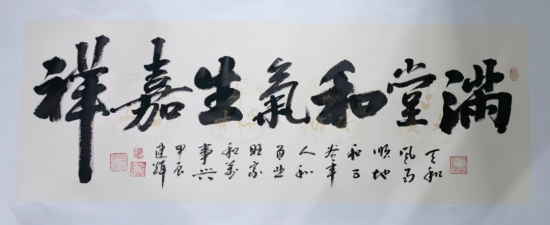 滿堂和氣生嘉祥
天和
风雨
顺地
和五
谷丰
人和
百业
旺家
和萬
事兴
甲辰
建辉